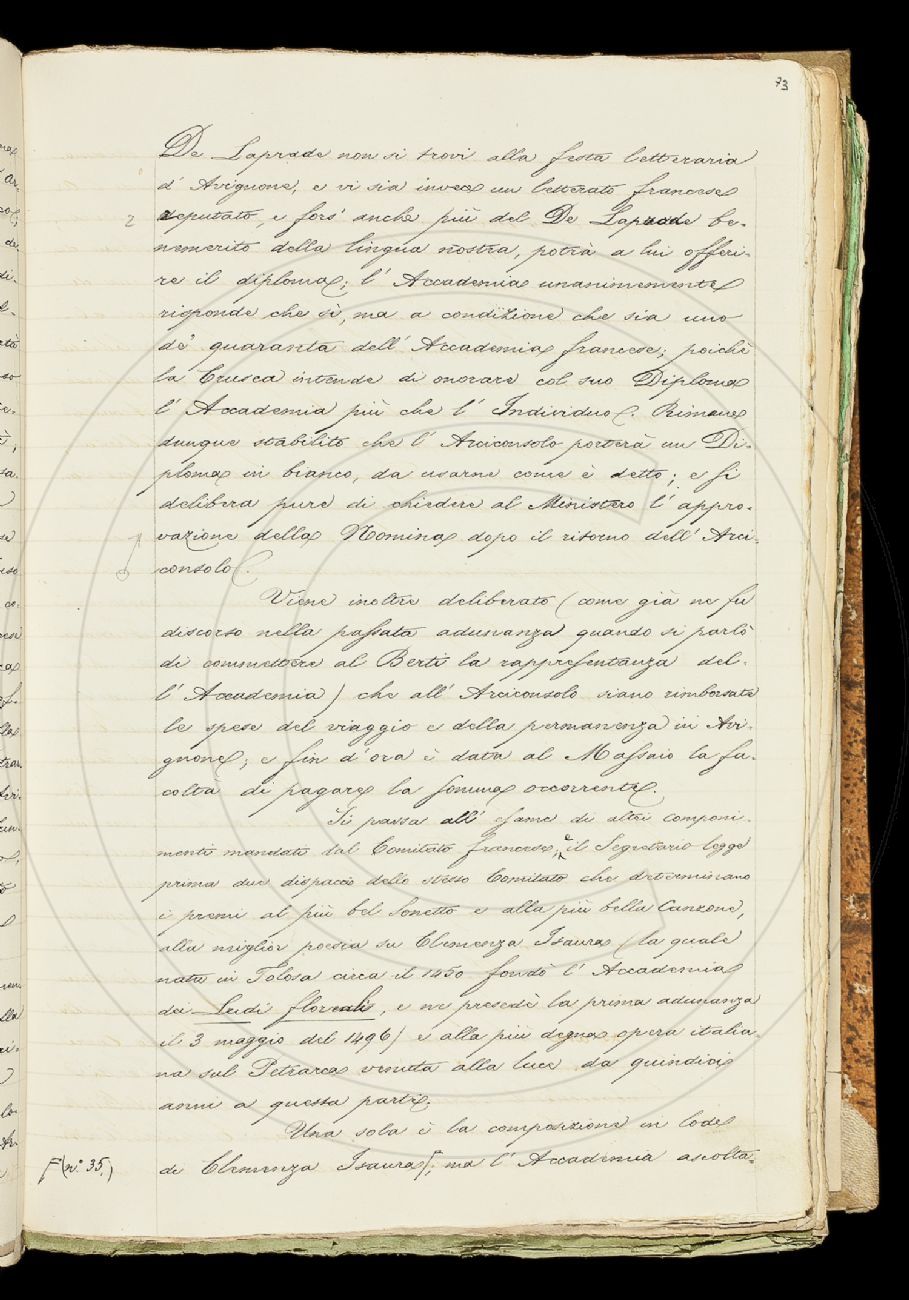 73
De Laprade non si trovi alla festa letteraria
d' Avignone, e vi sia invece un letterato francese
2
deputato, e fors' anche più del De Laprade be-
nemerito della lingua nostra, potrà a lui offeri-
re il diploma; l' Accademia unanimemente
risponde che sì, ma a condizione che sia uno
de' quaranta dell' Accademia francese; poichè
la Crusca intende di onorare col suo Diploma
l' Accademia più che l' Individuo. Rimane
dunque stabilito che l' Arciconsolo porterà un Di-
ploma in bianco, da usarne come è detto; e si
delibera pure di chiedere al Ministero l' appro-
vazione della Nomina dopo il ritorno dell' Arci-
consolo.
Viene inoltre deliberato (come già ne fu
discorso nella passata adunanza quando si parlò
di commettere al Berti la rappresentanza del-
l' Accademia) che all' Arciconsolo siano rimborsate
le spese del viaggio e della permanenza in Avi-
gnone; e fin d' ora è data al Massaio la fa-
coltà di pagare la somma occorrente.
Si passa all' esame di altri componi-
menti mandati dal Comitato francese, e il Segretario legge
prima due dispacci dello stesso Comitato che determinano
i premi al più bel Sonetto e alla più bella Canzone,
alla miglior poesia su Clemenza Isaura (la quale
nata in Tolosa circa il 1450 fondò l' Accademia
dei Ludi floreali, e ne presedè la prima adunanza
il 3 maggio del 1496) e alla più degna opera italia-
na sul Petrarca venuta alla luce da quindici
anni a questa parte.
Una sola è la composizione in lode
di Clemenza Isaura; ma l' Accademia ascolta-
(n.° 35.)